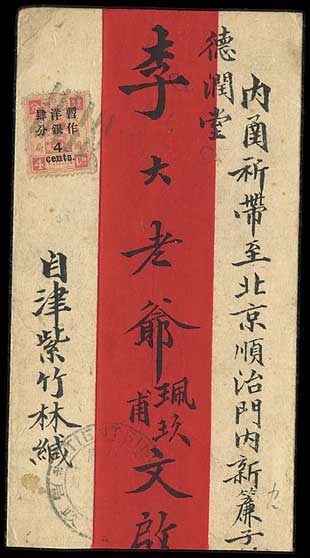 內甬祈帶至北京順治門內新簾子
德潤堂
李大老爺珮玖甫文啟
自津紫竹林緘
暫作
洋銀
肆分
4
cents.